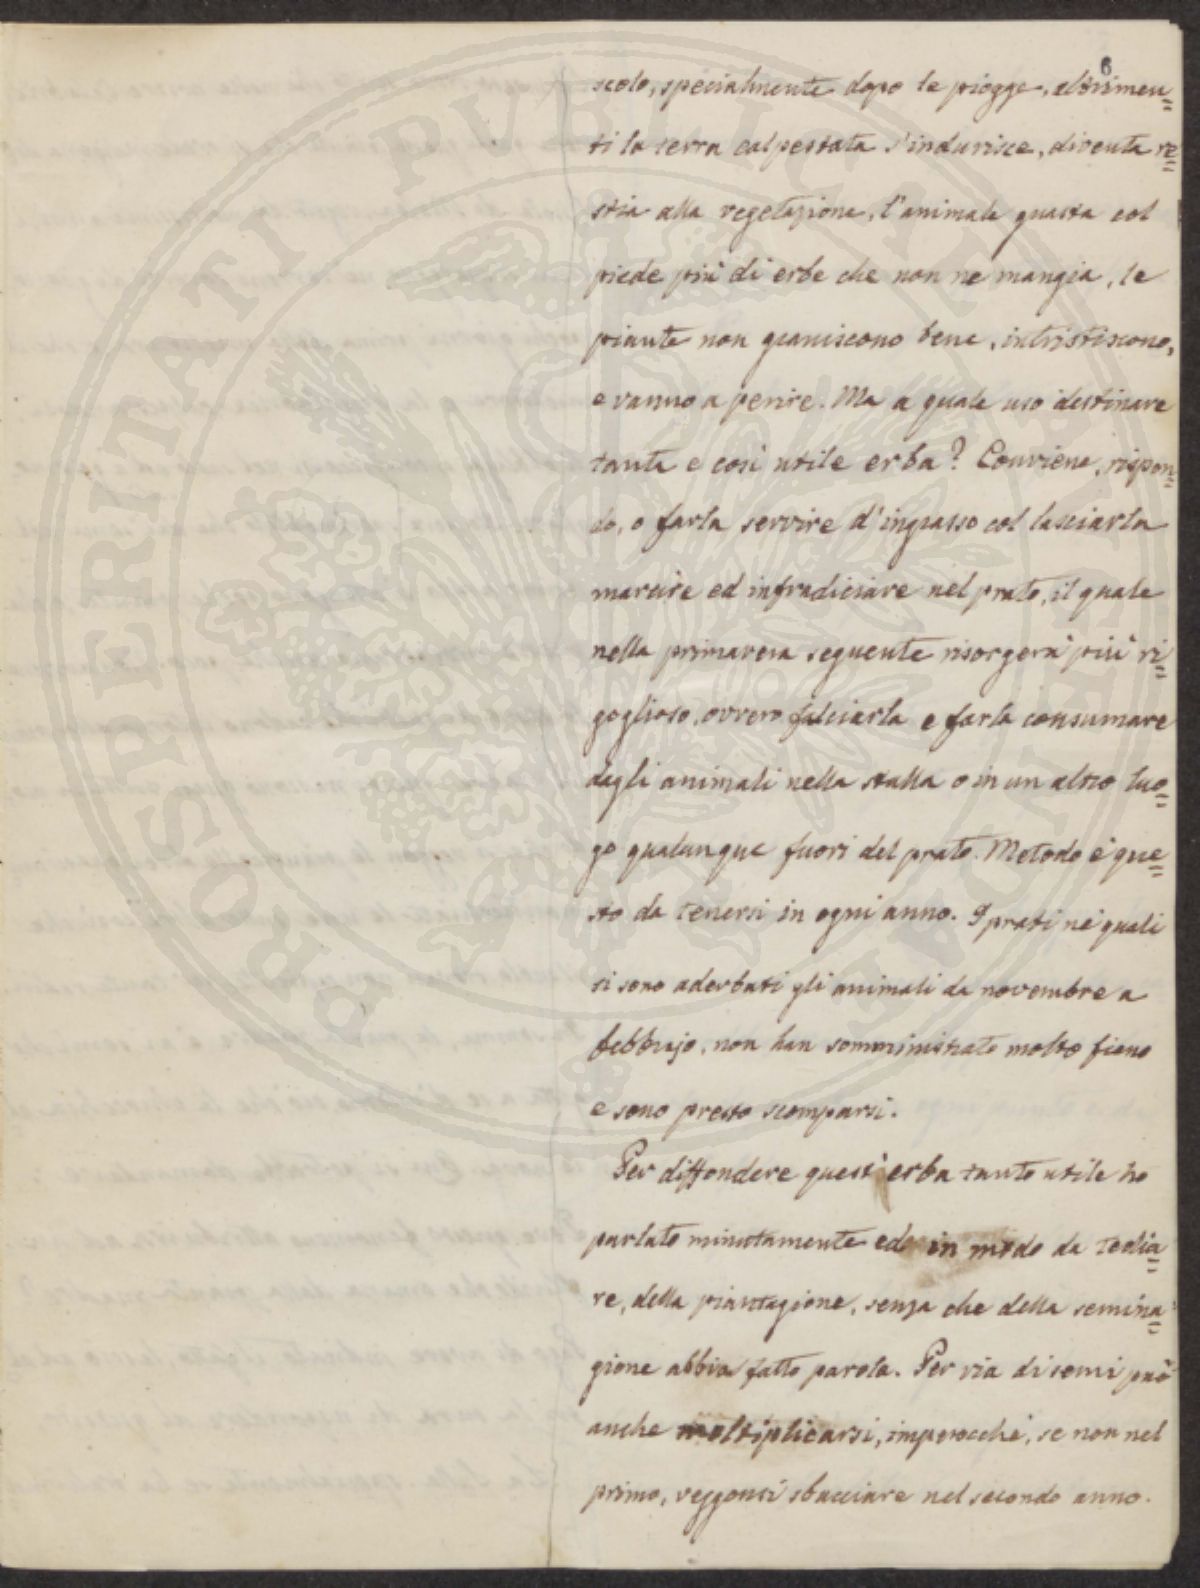 6
scolo, specialmente dopo le piogge, altrimen=
ti la terra calpestata s'indurisce, diventa re=
stia alla vegetazione, l'animale guasta col
piede più di erbe che non ne mangia, le
piante non graniscono bene, intristiscono,
e vanno a perire. Ma a quale uso destinare
tanta e così utile erba? Conviene, rispon=
do, o farla servire d'ingrasso col lasciarla
marcire ed infradiciare nel prato, il quale
nella primavera seguente risorgerà più ri=
goglioso, ovvero falciarla e farla consumare
dagli animali nella stalla o in un altro luo=
go qualunque fuori del prato. Metodo è que=
sto da tenersi in ogni anno. I prati ne' quali
si sono aderbati gli animali da novembre a
febbrajo, non han somministrato molto fieno
e sono presto scomparsi.
Per diffondere quest'erba tanto utile ho
parlato minutamente ed in modo da tedia=
re, della piantagione, senza che della semina=
gione abbia fatto parola. Per via di semi può
anche moltiplicarsi, imperocché, se non nel
primo, veggonsi sbucciare nel secondo anno.
PROSPERITATI PUBLICAE